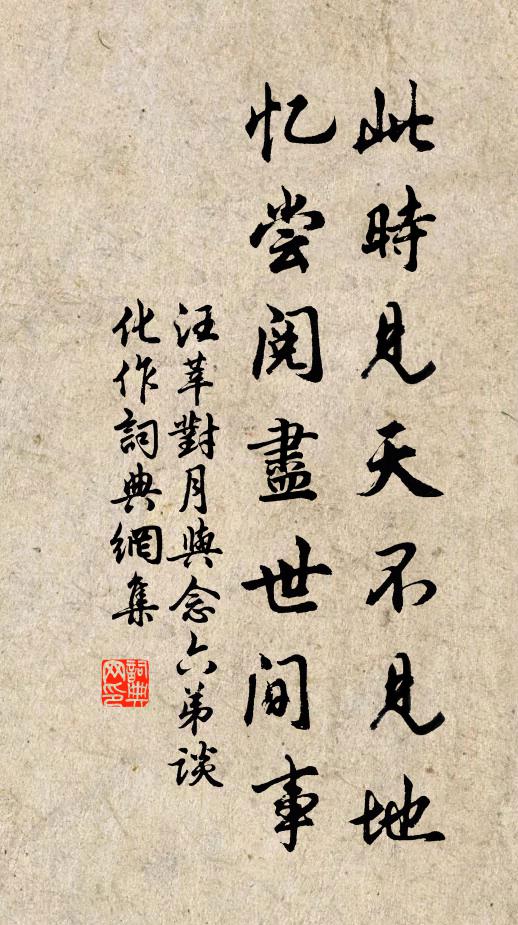 此時見天不見地
忆尝阅盡世间事
汪莘對月與念六弟談
化作詞典網集
詞典
网印